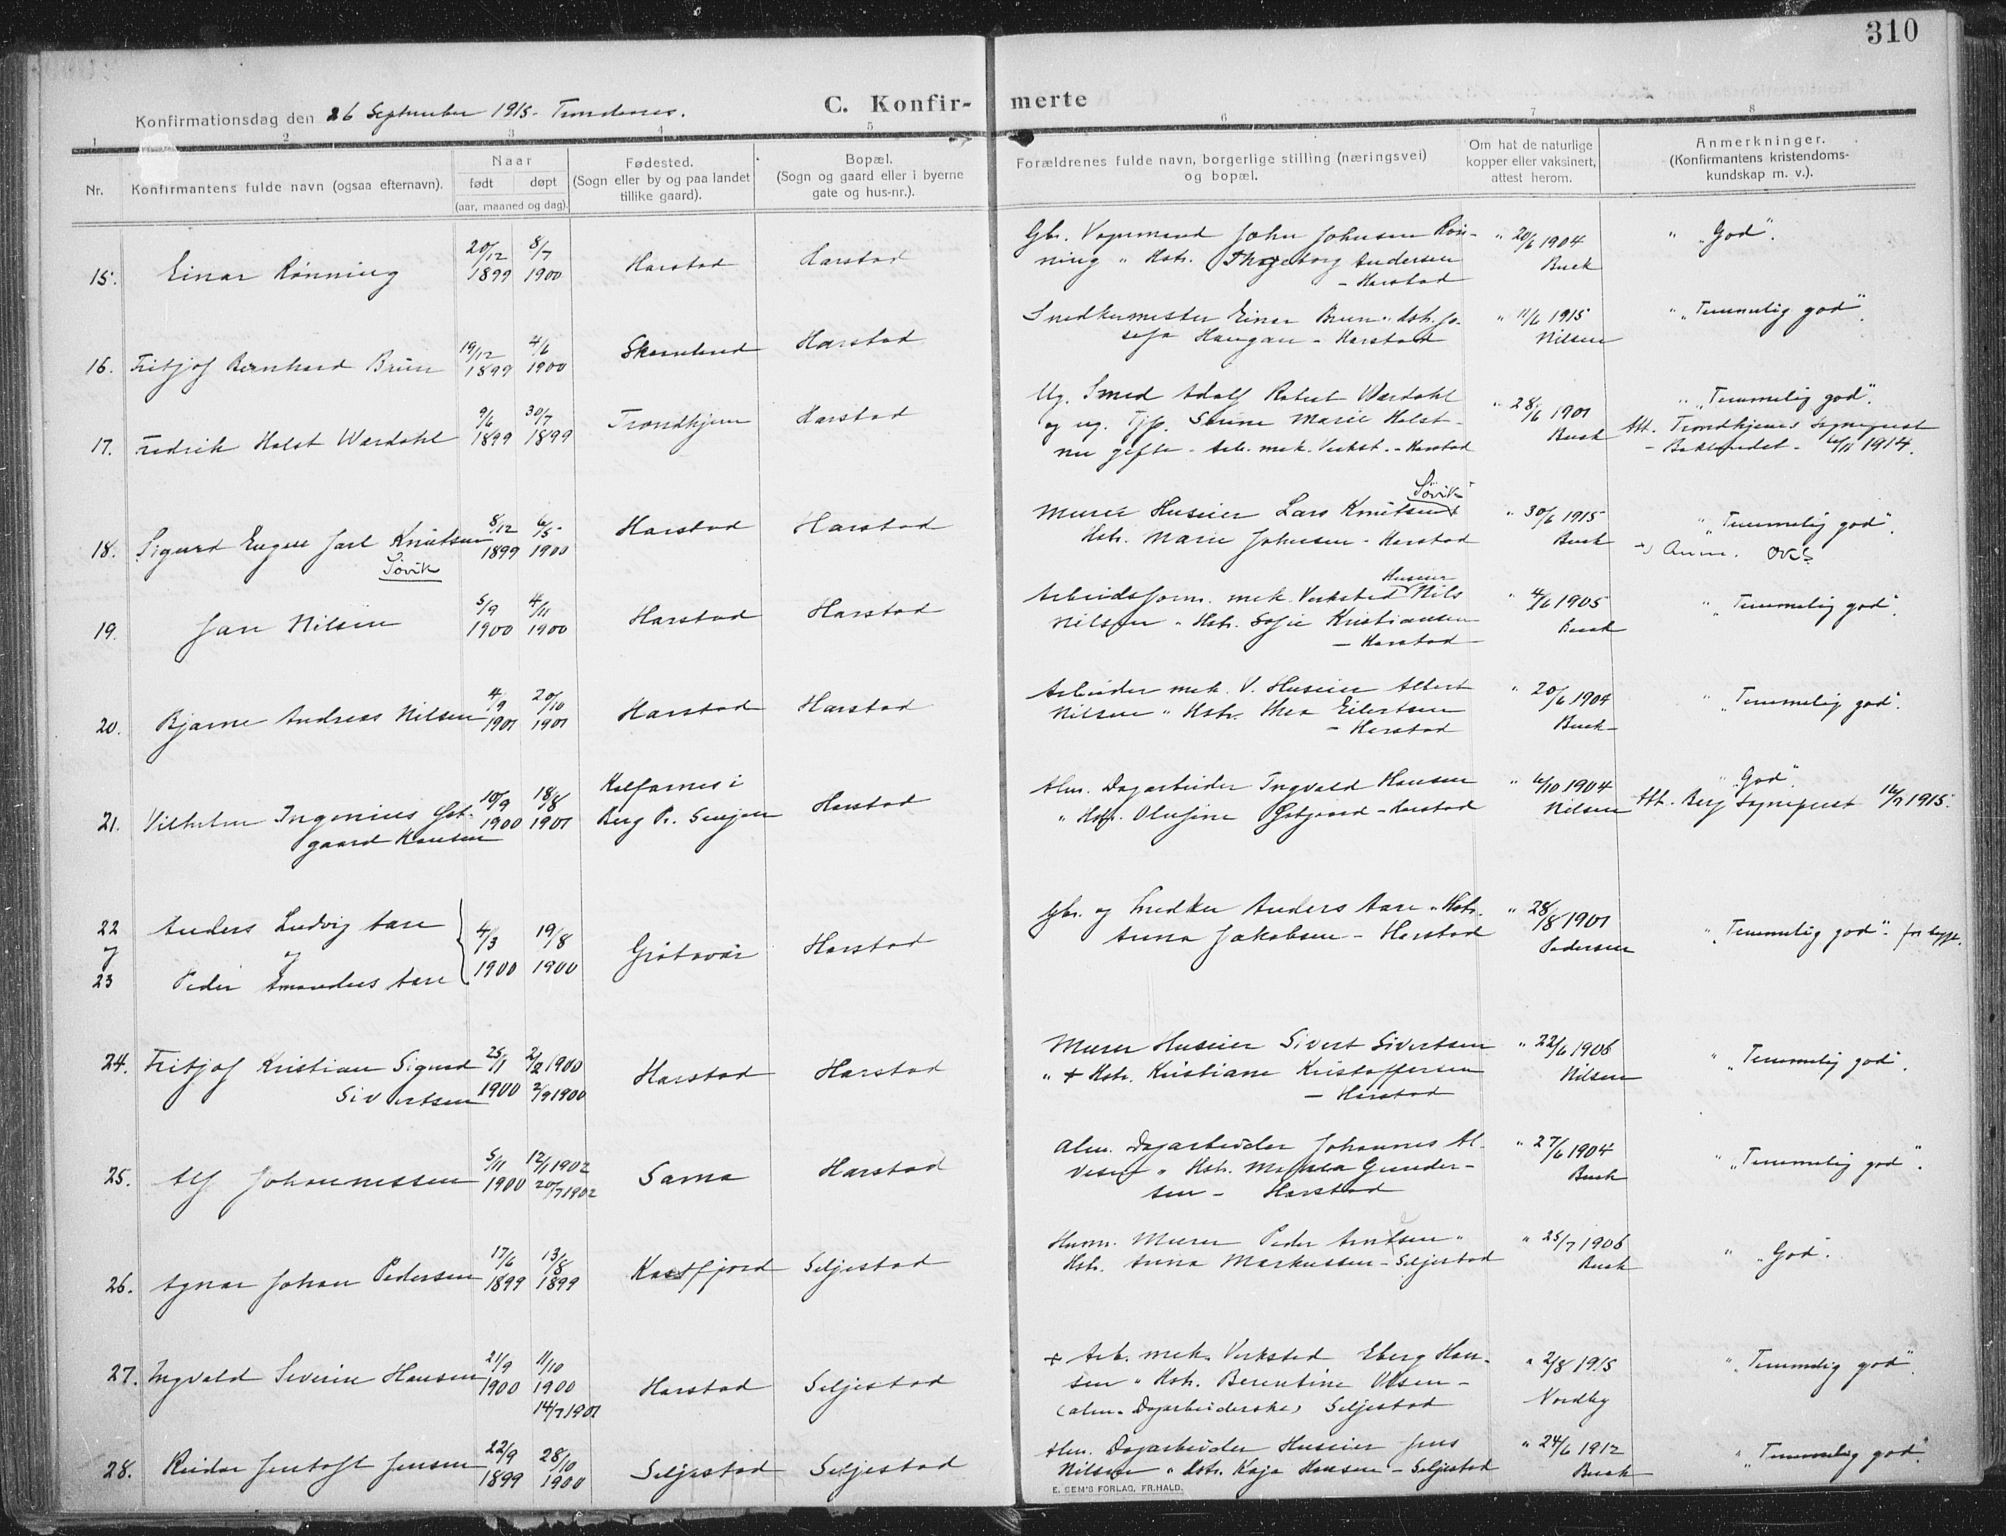 310
C. Konfir- merte
Konfirmationsdag den 26 September 1915. Trondenes.
1 2 3 4 5 6 7 8
Nr.
Konfirmantens fulde navn (ogsaa efternavn).
Naar
født døpt
(aar, maaned og dag).
Fødested.
(Sogn eller by og paa landet
tillike gaard).
Bopæl.
(Sogn og gaard eller i byerne
gate og hus-nr.).
Forældrenes fulde navn, borgerlige stilling (næringsvei)
og bopæl.
Om hat de naturlige
kopper eller vaksinert,
attest herom.
Anmerkninger.
(Konfirmantens kristendoms-
kundskap m. v.).
15. Einar Rønning 20/12 1899 8/7 1900 Harstad Harstad
Gbr. Vognmand John Johnsen Røn-
ning " Hstr. Andersen
- Harstad
" 20/6 1904
Buck
" "God".
16. Fritjof Bernhard Bruun 19/12 1899 4/6 1900 Harstad
Snedkermester Einar Bruun " Hstr. Jo-
sefa Haugan - Harstad
" 11/6 1915
Nilsen
" "Temmelig god".
17. Fredrik Holst Wærdahl 9/6 1899 30/7 1899 Trondhjem Harstad
Ug. Smed Adolf Robert Wærdahl
og ug. Tjp. Serine Marie Holst -
nu gifte - Arb. mek. Verkst. - Harstad
" 28/6 1901
Buck
" "Temmelig god".
Att. Trondhjems Sognepræst
- Baklandet - 1914.
18. Sigurd Eugen Jarl Knutsen 8/12 1899 6/5 1900 Harstad Harstad
Søvik
Søvik
Murer Huseier Lars Knutsen
Hstr. Marie Johnsen - Harstad
" 30/6 1915
Buck
" "Temmelig god".
Anm.
19. Jan Nilsen 5/9 1900 4/11 1900 Harstad Harstad
Huseier
Arbeidsform. mek. Verksted Nils
Nilsen " Hstr. Sofie Kristiansen
- Harstad
" 4/6 1905
Buck
" "Temmelig god".
20. Bjarne Andreas Nilsen 4/9 1901 20/10 1901 Harstad Harstad
Arbeider mek. V. Huseier Albert
Nilsen " Hstr. Thea Eilertsen
- Harstad
" 20/6 1904
Buck
" "Temmelig god".
21. Vilhelm Ingenius Øst-
gaard Hansen 10/9 1900 18/8 1901 Kalfarnes i
Berg Pr. Senjen Harstad
Alm. Dagarbeider Ingvald Hansen
" Hstr. Olufine Østgaard - Harstad
" 6/10 1904
Nilsen
" "God".
Att. Berg Sognepræst 1915.
22 Anders Ludvig Aare
og
23 Peder Amandus Aare 4/3 1900 19/8 1900 Grøtavær Harstad
Gbr. og Snedker Anders Aare " Hstr.
Anna Jakobsen - Harstad
" 28/8 1901
Pedersen
" "Temmelig god". for begge.
24. Fritjof Kristian Sigurd
Sivertsen 25/1 1900 2/2 1900 2/9 1900 Harstad Harstad
Murer Huseier Sivert Sivertsen
" + Hstr. Kristiane Kristoffersen
- Harstad
" 22/6 1906
Nilsen
" "Temmelig god".
25. Alf Johannessen 5/11 1900 12/1 1902 20/7 1902 Sama Harstad
Alm. Dagarbeider Johannes Al-
" Hstr. Gunder-
sen - Harstad
" 27/6 1904
Buck
" "Temmelig god".
26. Agnar Johan Pedersen 17/6 1899 13/8 1899 Kasfjord Seljestad
Husm. Murer Peder Arntsen "
Hstr. Anna Markussen - Seljestad
" 25/7 1906
Buck
" "God".
27. Ingvald Severin Hansen 21/9 1900 11/10 1900 14/7 1901 Harstad Seljestad
+ Arb. mek. Verksted Eberg Han-
sen " Hstr. Berentine Olsen -
(alm. Dagarbeiderske) Seljestad
" 2/8 1915
Nordby
" "Temmelig god".
28. Reidar Jentoft Jensen 22/9 1899 28/10 1900 Seljestad Seljestad
Alm. Dagarbeider Huseier Jens
Nilsen " Hstr. Kaja Hansen - Seljestad
" 24/6 1912
Buck
" "Temmelig god".
E. SEM'S FORLAG, FR.HALD.